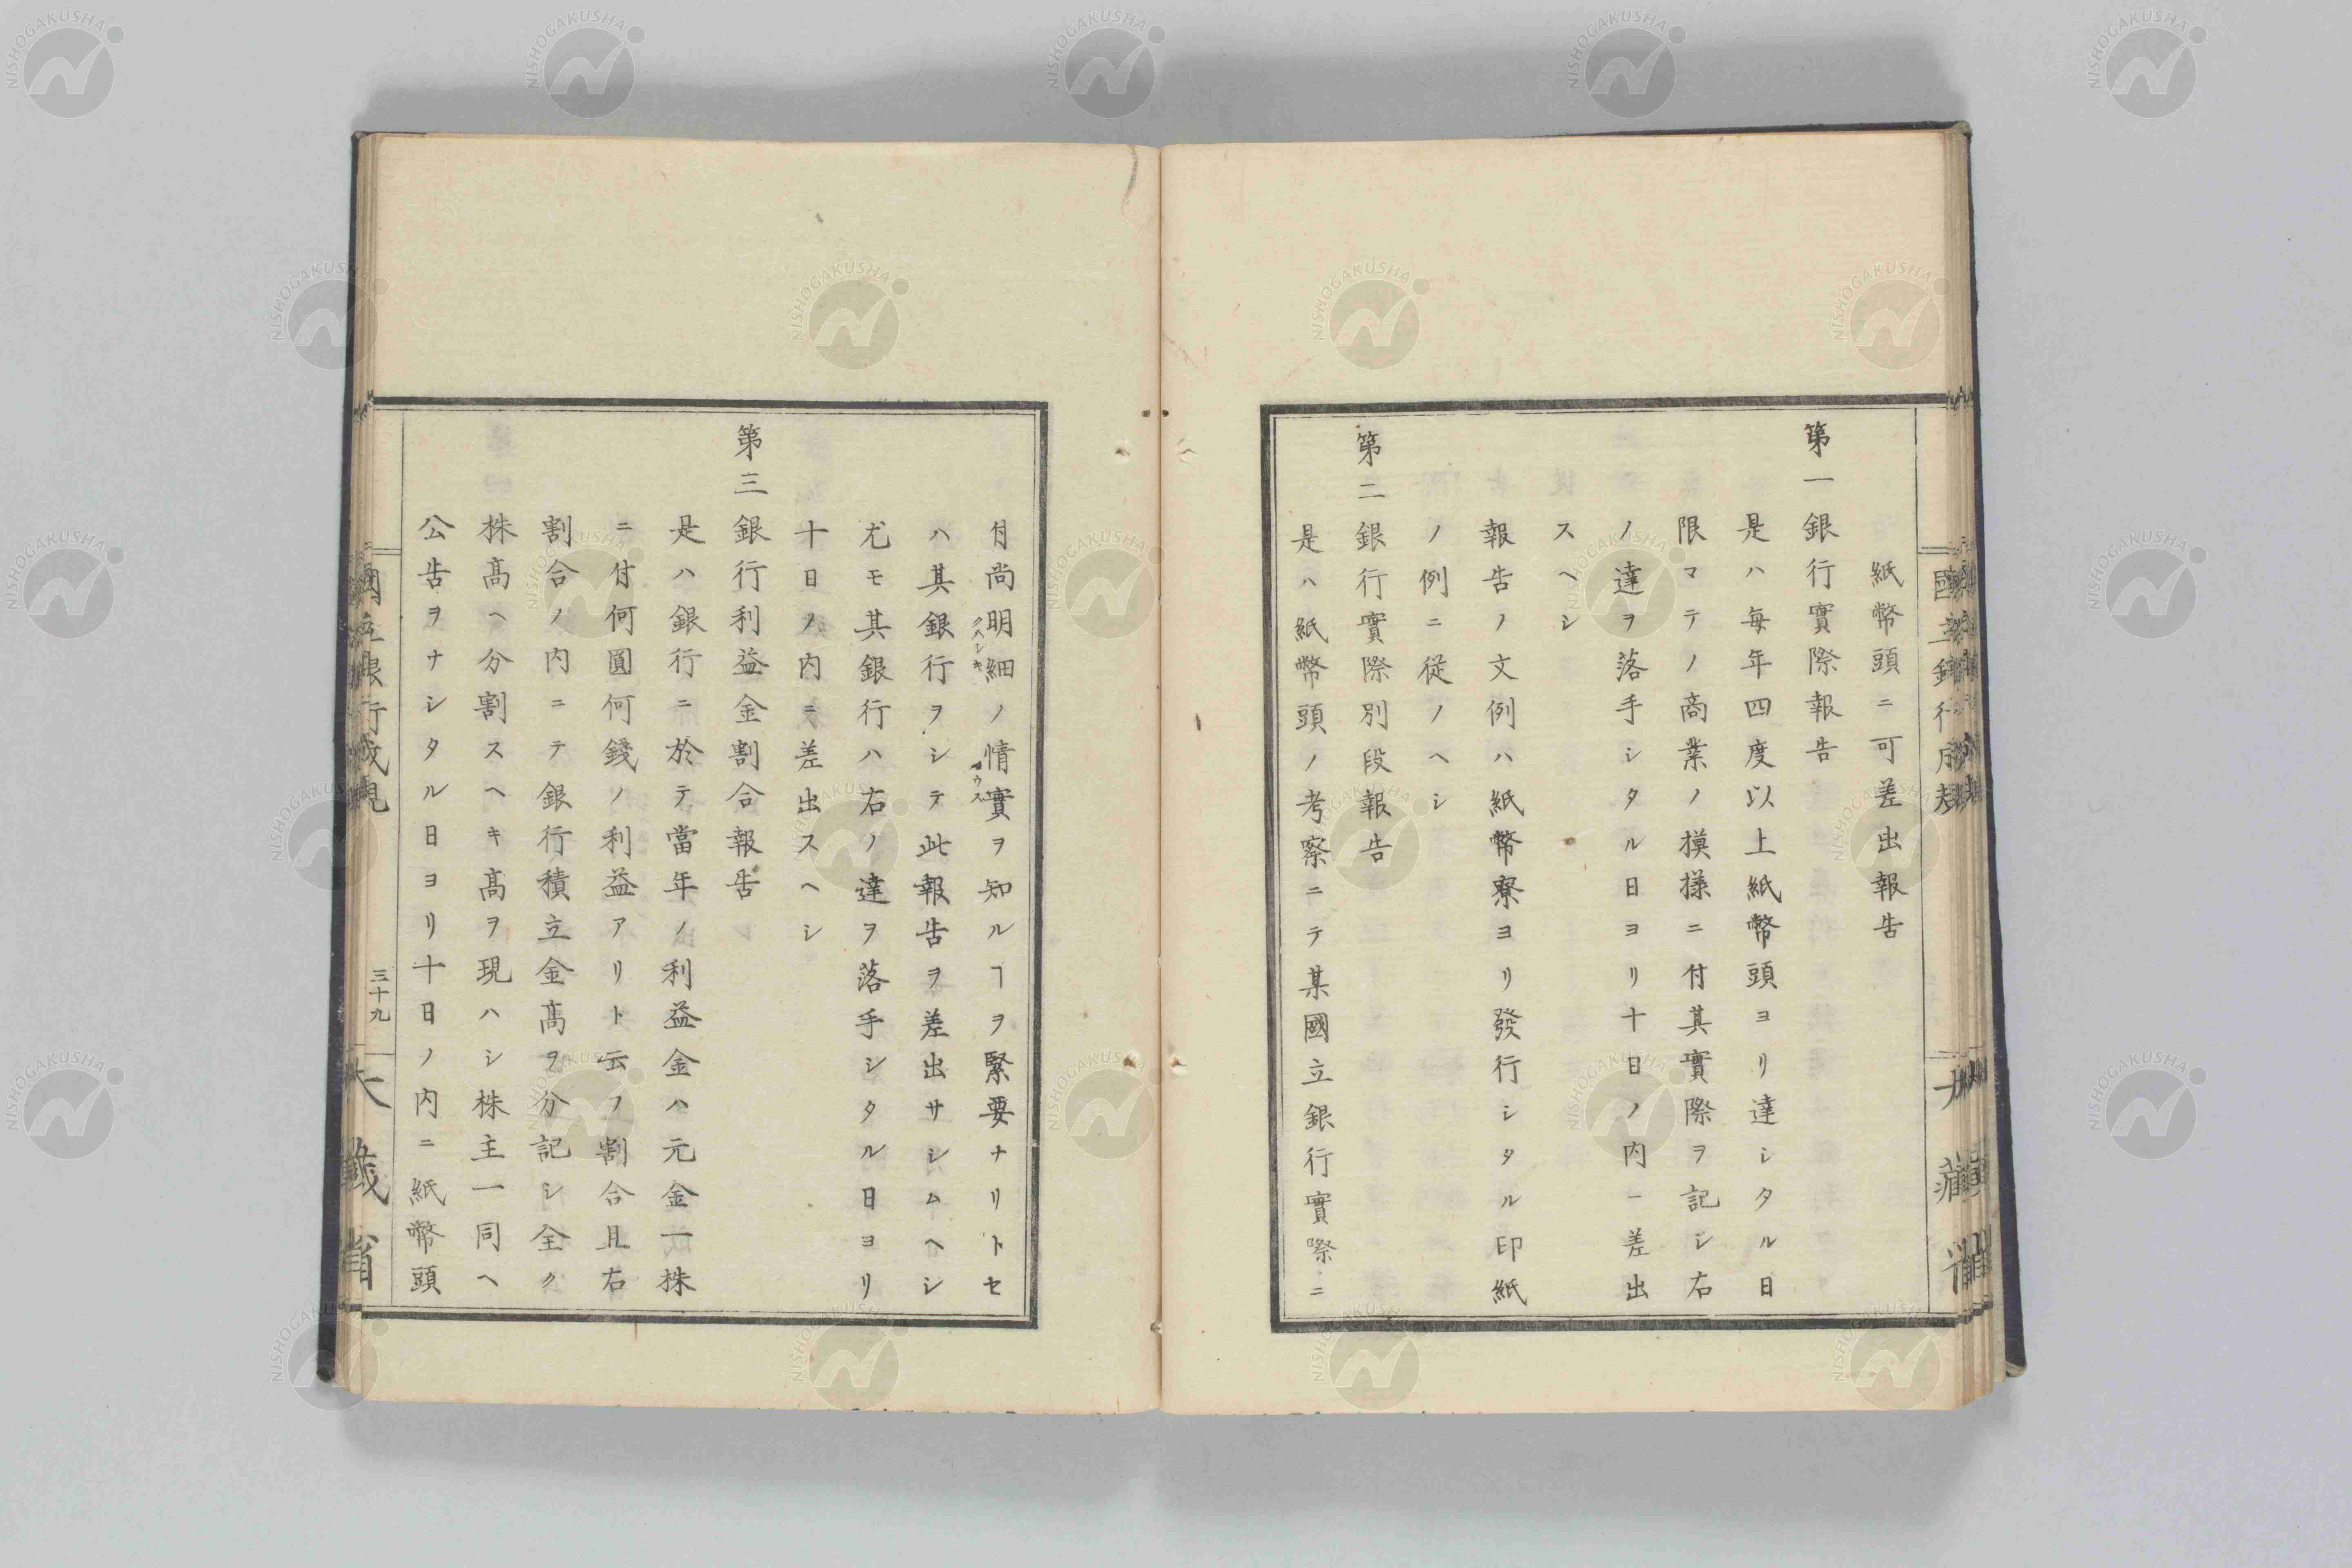 紙幣頭ニ可差出報告
第一銀行實際報告
是ハ毎年四度以上紙幣頭ヨリ達シタル日
限マテノ商業ノ摸様ニ付其實際ヲ記シ右
ノ達ヲ落手シタル日ヨリ十日ノ内ニ差出
スヘシ
報告ノ文例ハ紙幣寮ヨリ發行シタル印紙
ノ例ニ従ノヘシ
第二銀行實際別段報告
是ハ紙幣頭ノ考察ニテ某國立銀行實際ニ
付尚明細ノ情實ヲ知ルヿヲ緊要ナリトセ
クハシキ
ハ其銀行ヲシテ此報告ヲ差出サシムヘシ
尤モ其銀行ハ右ノ達ヲ落手シタル日ヨリ
十日ノ内ニ差出スヘシ
第三銀行利益金割合報告
是ハ銀行ニ於テ當年ノ利益金ハ元金一株
ニ付何圓何錢ノ利益アリト云フ割合且右
割合ノ内ニテ銀行積立金髙ヲ分記シ全ク
株髙ヘ分割スヘキ髙ヲ現ハシ株主一同ヘ
公告ヲナシタル日ヨリ十日ノ内ニ紙幣頭
國立銀行成規
三十九
大藏省
NISHOGAKUSHA